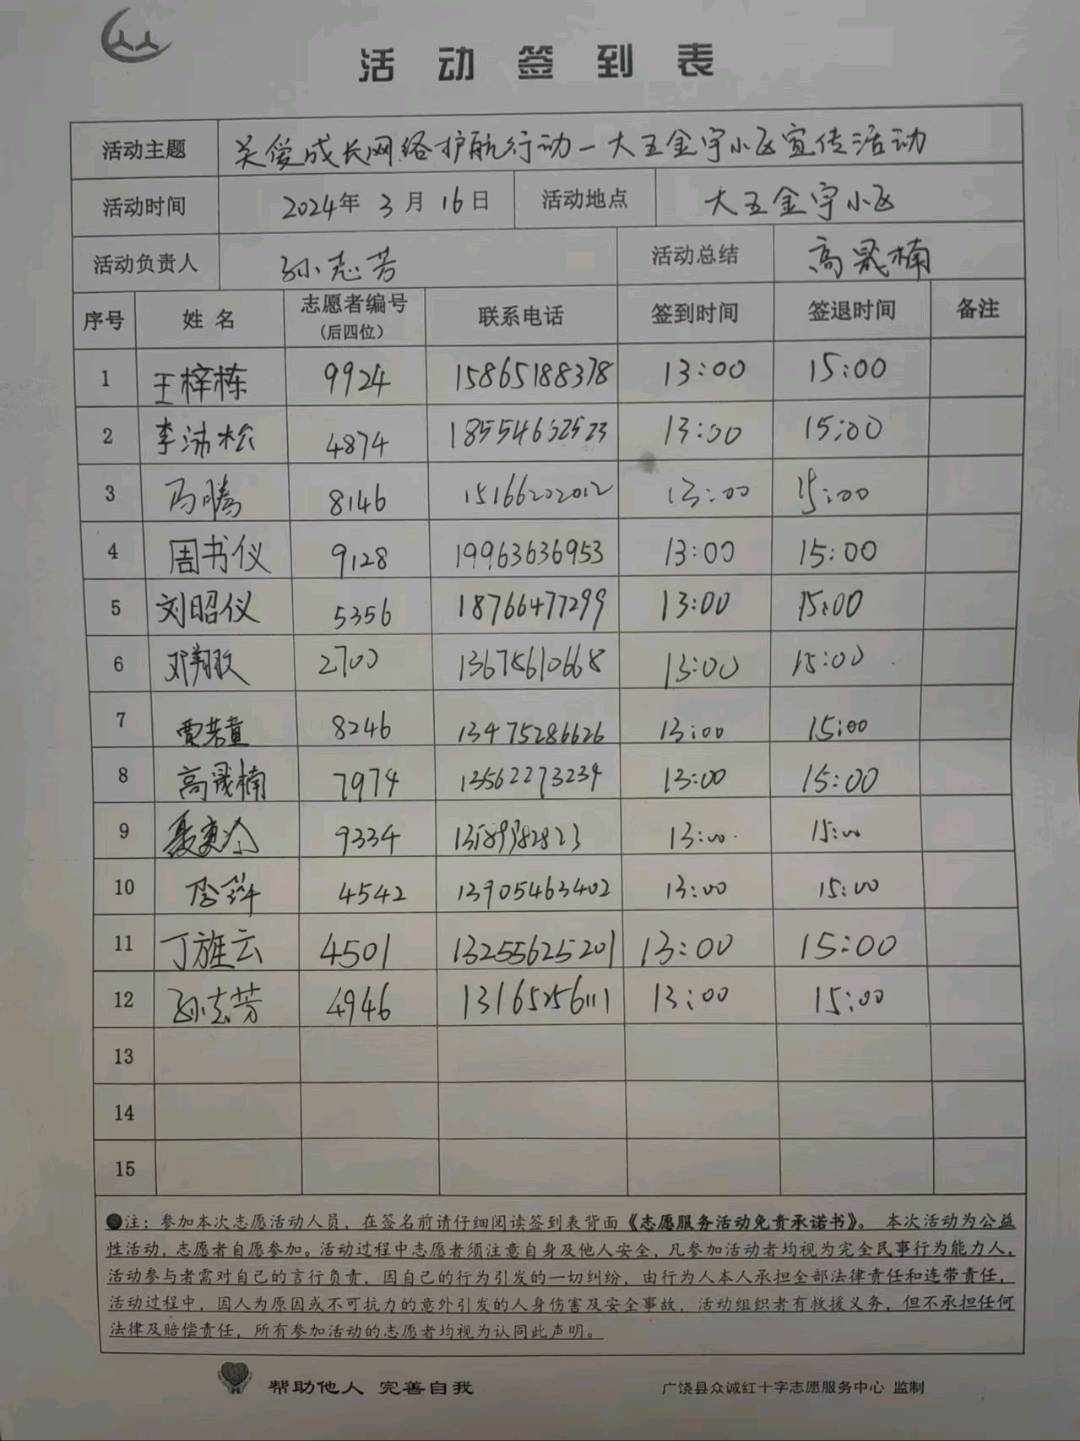 活动签到表
活动主题 关爱成长网络护航行动-大五金宇小区宣传活动
活动时间 2024年 3月 16日 活动地点 大五金宇小区
活动负责人 孙志芳 活动总结 高晟楠
序号 姓名 志愿者编号（后四位） 联系电话 签到时间 签退时间 备注
1 王梓栋 9924 15865188378 13:00 15:00
2 李沛松 4874 13:00 15:00
3 冯腾 8146 15166202012 13:00 15:00
4 周书仪 9128 19963636953 13:00 15:00
5 刘昭仪 5356 18766477299 13:00 15:00
6 2700 13675610668 13:00 15:00
7 贾若童 8246 13475286626 13:00 15:00
8 高晟楠 7974 13562273234 13:00 15:00
9 9334 13:00 15:00
10 4542 13905463402 13:00 15:00
11 丁旌云 4501 13255625201 13:00 15:00
12 孙志芳 4946 13165256111 13:00 15:00
13
14
15
●注：参加本次志愿活动人员，在签名前请仔细阅读签到表背面《志愿服务活动免责承诺书》。本次活动为公益
性活动，志愿者自愿参加。活动过程中志愿者须注意自身及他人安全，凡参加活动者均视为完全民事行为能力人，
活动参与者需对自己的言行负责，因自己的行为引发的一切纠纷，由行为人本人承担全部法律责任和连带责任，
活动过程中，因人为原因或不可抗力的意外引发的人身伤害及安全事故，活动组织者有救援义务，但不承担任何
法律及赔偿责任，所有参加活动的志愿者均视为认同此声明。
帮助他人 完善自我 广饶县众诚红十字志愿服务中心 监制